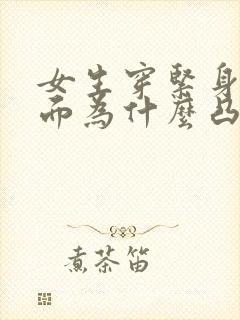 女生穿緊身
而為什麼凸
煮茶笛